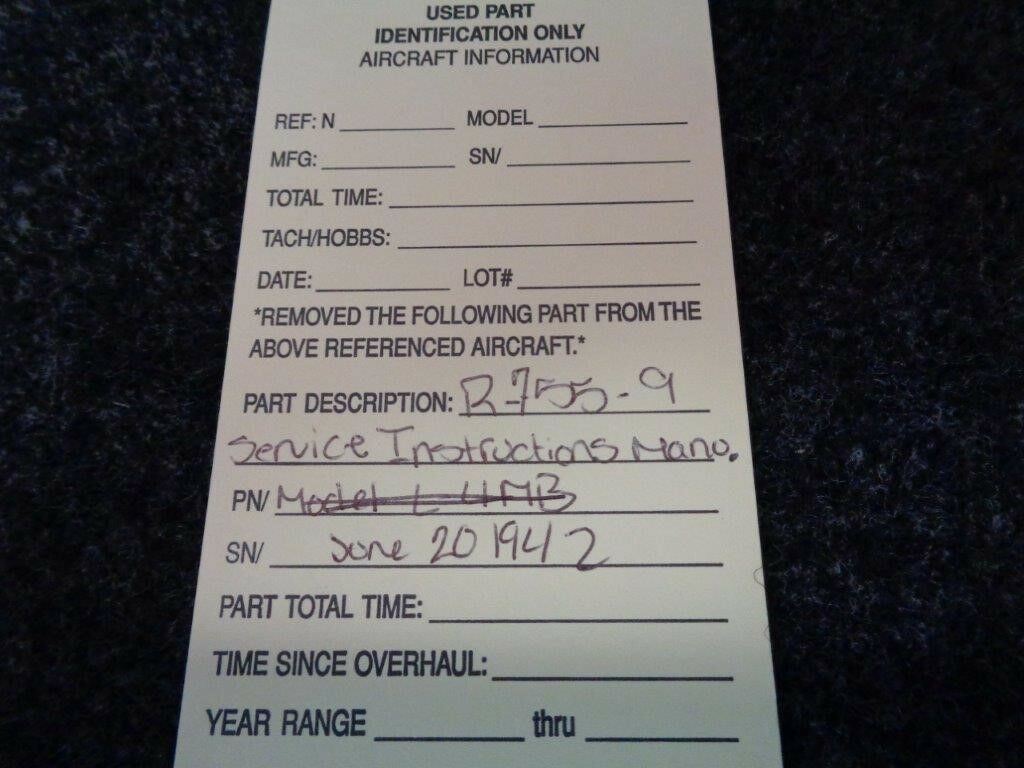 USED PART
IDENTIFICATION ONLY
AIRCRAFT INFORMATION
REF: N MODEL
MFG: SN/
TOTAL TIME:
TACH/HOBBS:
DATE: LOT#
*REMOVED THE FOLLOWING PART FROM THE
ABOVE REFERENCED AIRCRAFT.*
PART DESCRIPTION: R-755-9
Service Instructions Manu.
PN/ Model L-4MB
SN/ June 20 1942
PART TOTAL TIME:
TIME SINCE OVERHAUL:
YEAR RANGE thru